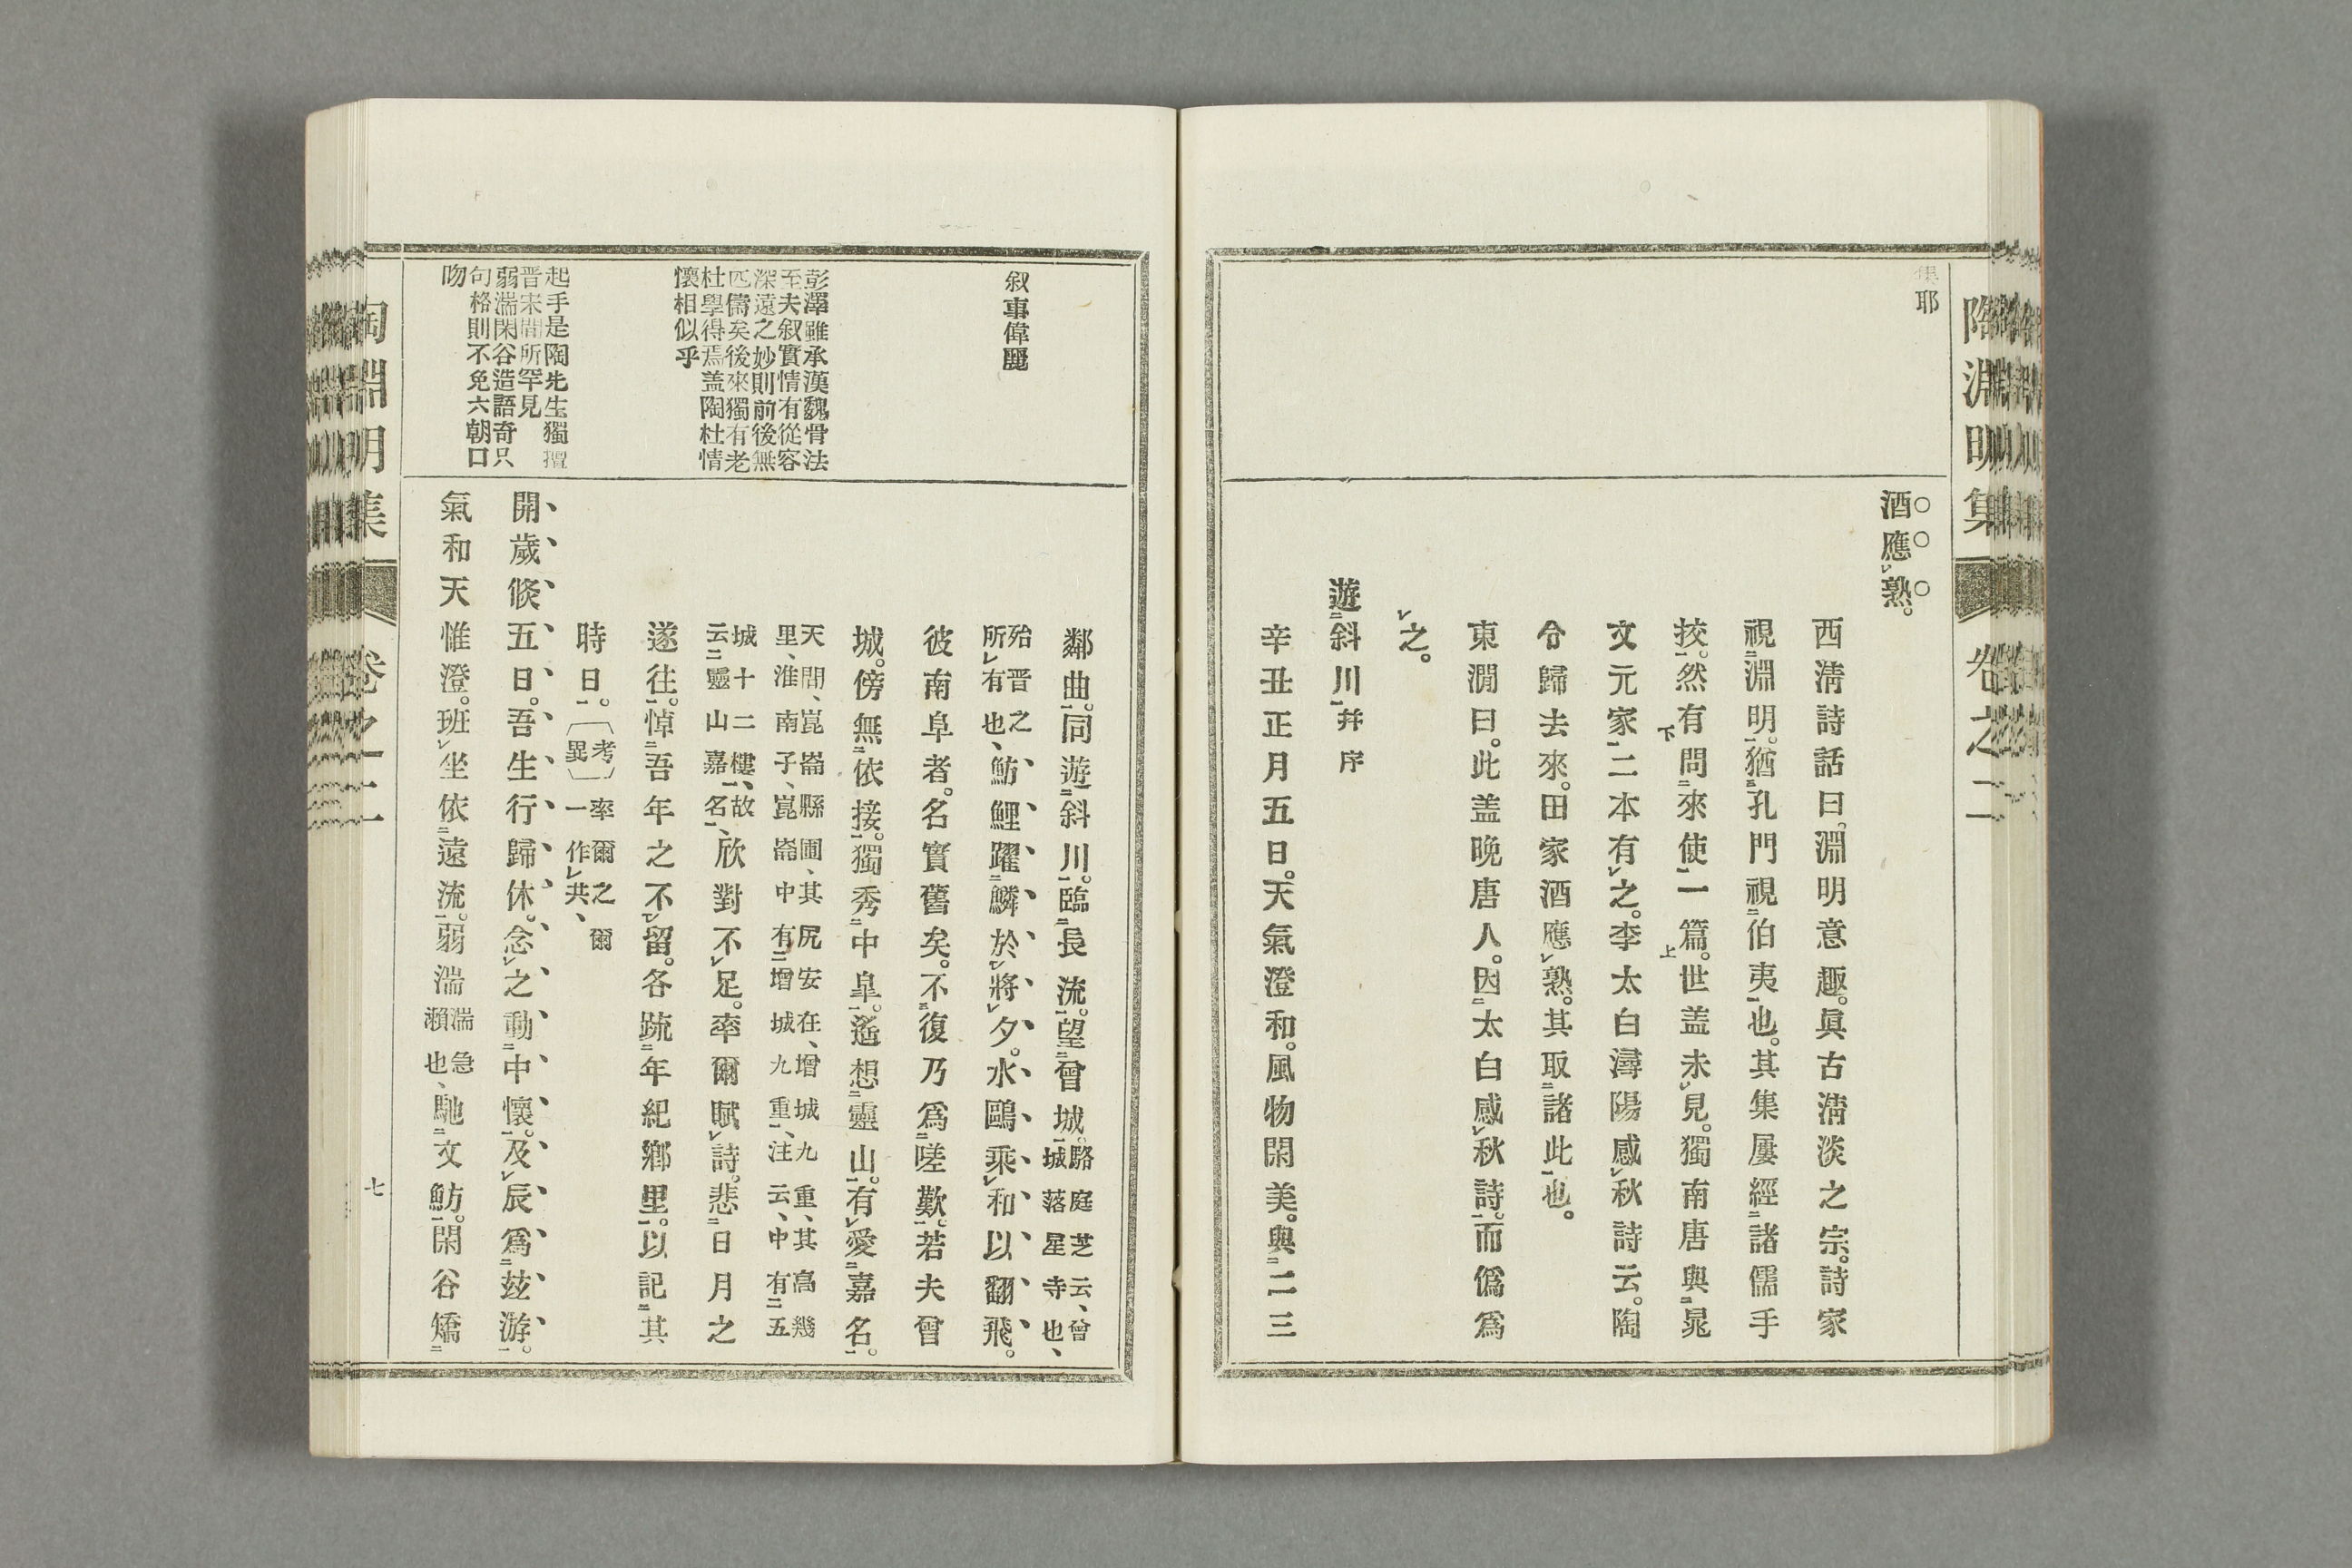 陶淵明集
卷之二
集耶
酒應㆑熟。
西淸詩話曰。淵明意趣。眞古淸淡之宗。詩家
視㆓淵明㆒。猶㆓孔門視㆓伯夷㆒也。其集屢經㆓諸儒手
挍㆒。然有㆘問㆓來使㆒一篇㆖。世盖未㆑見。獨南唐與㆓晁
文元家㆒二本有㆑之。李太白潯陽感㆑秋詩云。陶
令歸去來。田家酒應㆑熟。其取㆓諸此㆒也。
東㵎曰。此盖晚唐人。因㆓太白感㆑秋詩㆒。而僞爲
㆑之。
遊㆓斜川㆒幷序
辛丑正月五日。天氣澄和。風物閑美。與㆓二三
叙事偉麗
彭澤雖承漢魏骨法
至夫叙實情有從容
深遠之妙則前後無
匹儔矣後來獨有老
杜學得焉盖陶杜情
懷相似乎
起手是陶先生獨擅
晋宋間所罕見
弱湍閑谷造語奇只
句格則不免六朝口
吻
鄰曲㆒。同遊㆓斜川㆒。臨㆓長流㆒。望㆓曾城㆒。駱庭芝云、曾
城落星寺也、
殆晋之
所㆑有也、魴鯉躍㆓鱗於㆑將㆑夕。水鷗乘㆑和以翻飛。
彼南阜者。名實舊矣。不㆓復乃爲㆓嗟歎㆒。若夫曾
城。傍無㆓依接㆒。獨秀㆓中皐㆒。遙想㆓靈山㆒。有㆑愛㆓嘉名㆒。
天間、崑崙縣圃、其尻安在、增城九重、其高幾
里、淮南子、崑崙中有㆓增城九重㆒、注云、中有㆓五
城十二樓㆒、故
云㆓靈山嘉名㆒、欣對不㆑足。率爾賦㆑詩。悲㆓日月之
遂往㆒。悼㆓吾年之不㆑留。各疏㆓年紀鄕里㆒。以記㆓其
時日㆒。〔考異〕率爾之爾
一作㆑共、
開歲倐五日。吾生行歸休。念㆑之動㆓中懷㆒。及㆑辰爲㆓玆游㆒。
氣和天惟澄。班㆑坐依㆓遠流㆒。弱湍湍急
瀨也、馳㆓文魴㆒。閑谷矯㆓
陶淵明集
卷之二
七